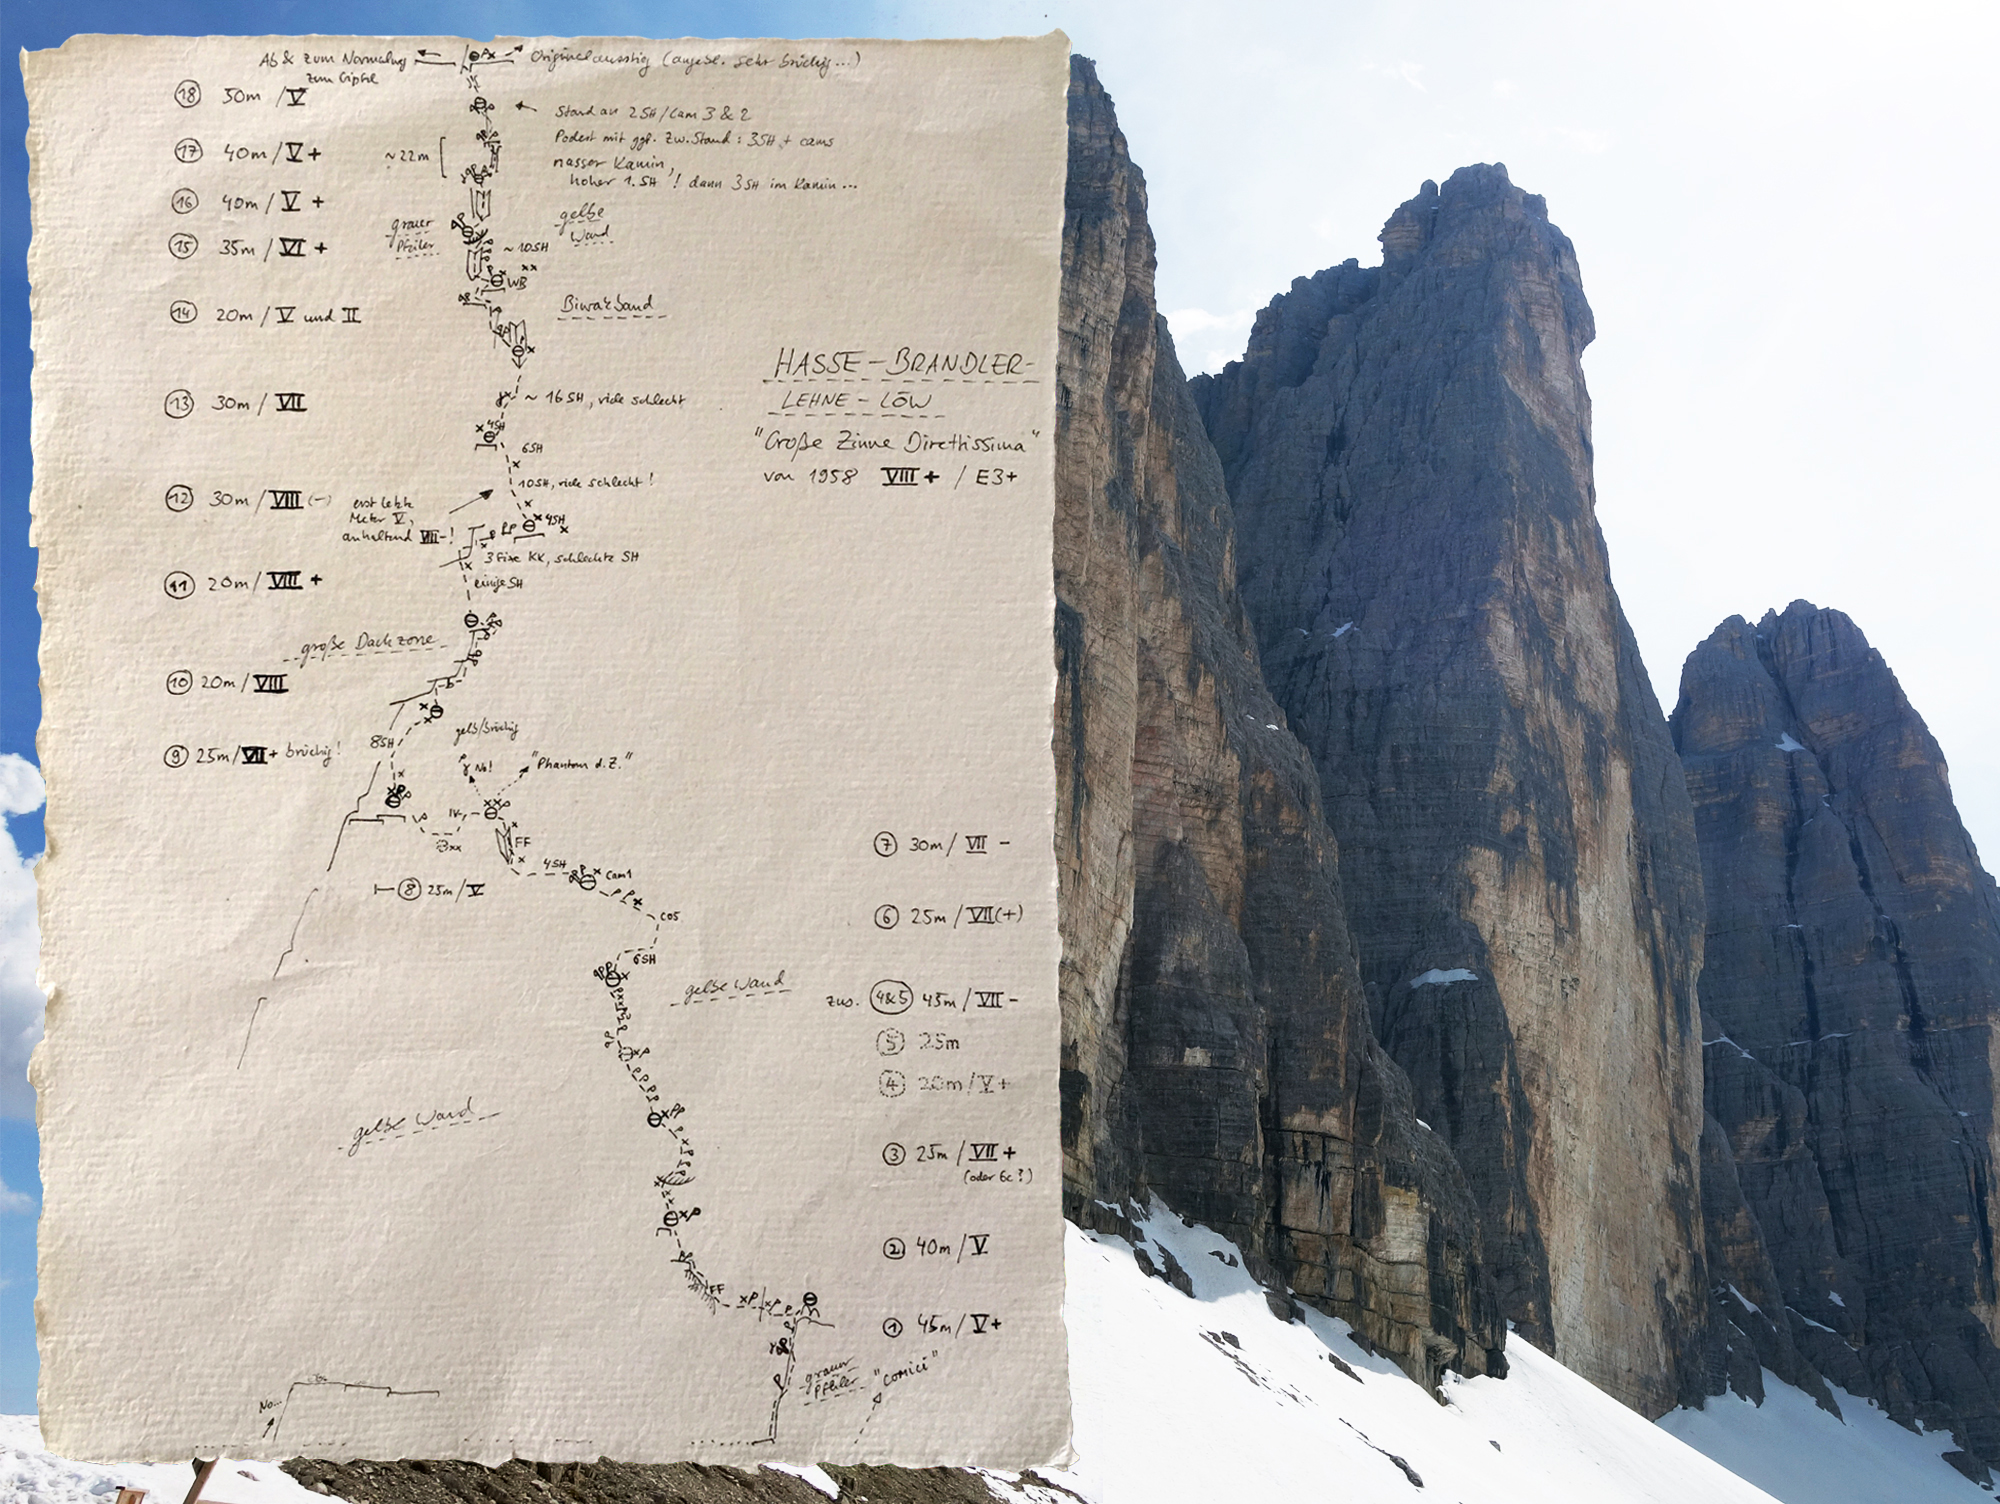 Ab & zum Normalweg
zum Gipfel
Originalausstieg (angebl. sehr brüchig...)
18 50m / V
Stand an 2SH/Cam 3 & 2
Podest mit ggf. Zw.Stand: 3SH + cams
17 40m / V+
~22m
nasser Kamin,
hoher 1.SH! dann 3SH im Kamin...
16 40m / V +
grauer
Pfeiler
gelbe
Wand
15 35m / VI +
~10SH
WB
Biwakband
14 20m / V und II
HASSE-BRANDLER-
LEHNE-LÖW
"Große Zinne Direttissima"
von 1958 VIII+ / E3+
13 30m / VII
~ 16SH, viele schlecht
4SH
6SH
10SH, viele schlecht!
12 30m / VIII (-)
erst letzte
Meter V,
anhaltend VIII-!
4SH
3 fixe KK, schlechte SH
einige SH
11 20m / VIII +
große Dachzone
10 20m / VIII
gelb/brüchig
8SH
9 25m / VII+ brüchig!
No!
"Phantom d.Z."
IV-
FF
4SH
Cam1
8 25m / V
C05
6SH
7 30m / VII -
6 25m / VII(+)
gelbe Wand
zus. 4&5 45m / VII -
5 25m
4 20m / V+
gelbe Wand
3 25m / VII +
(oder 6c?)
2 40m / V
FF
1 45m / V+
grauer
Pfeiler
"COMICI"
No...